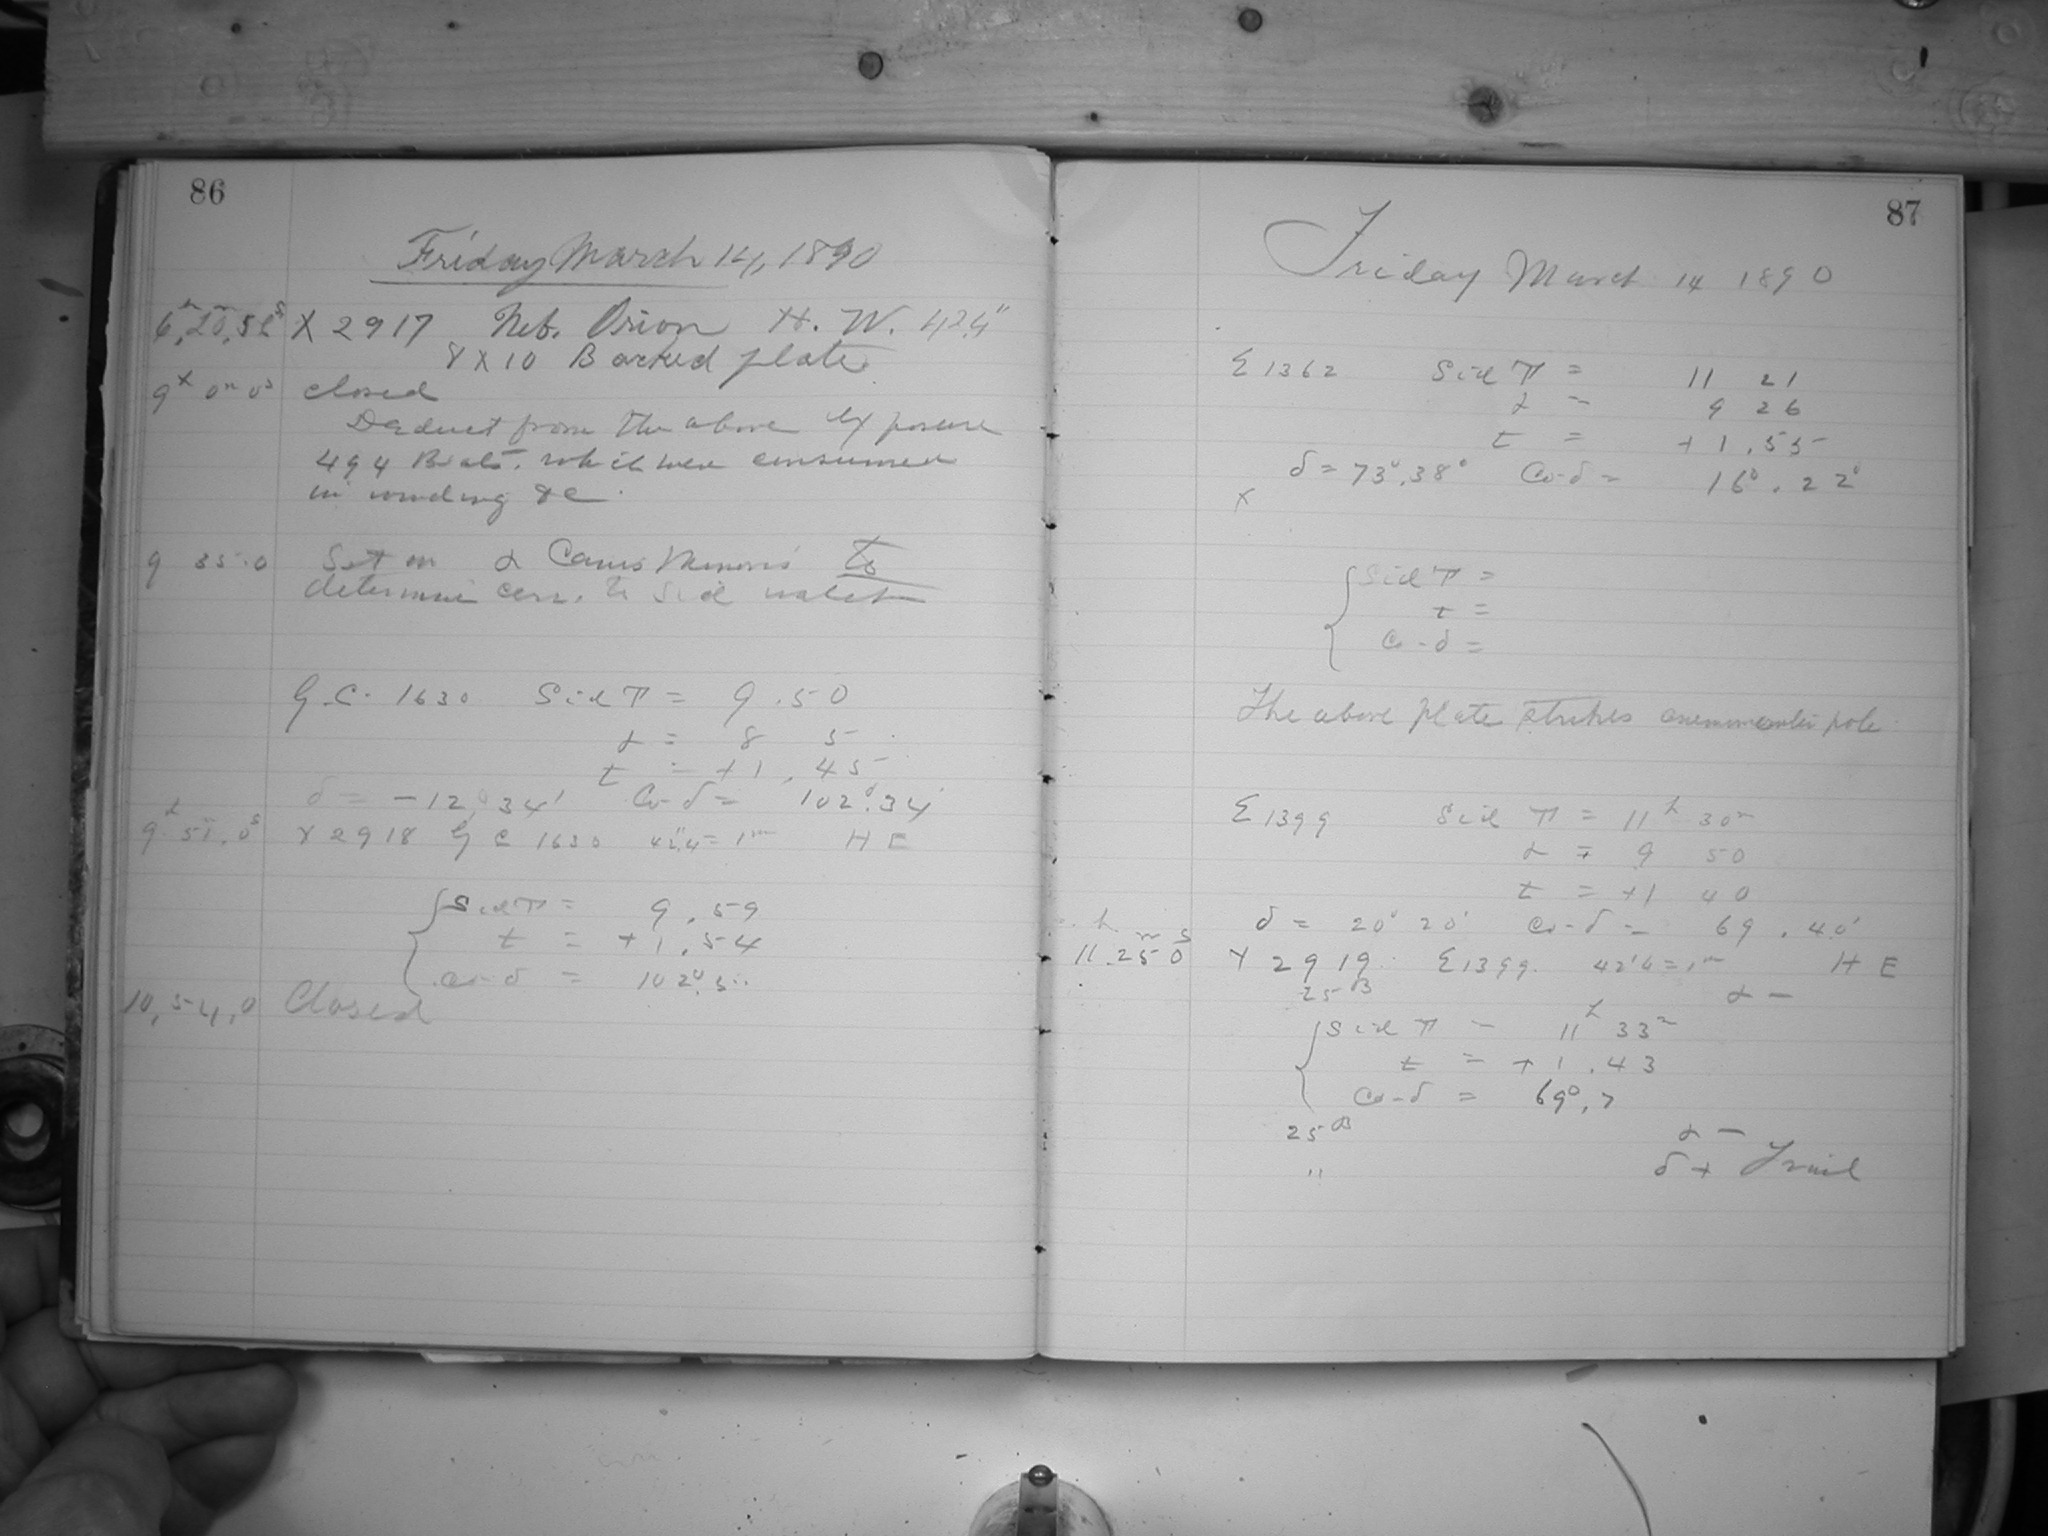 86
Friday March 14, 1890
X 2917 Neb. Orion H. W. 42.4"
8 X 10 Backed plate
9h 0m 0s closed
Deduct from the above exposure
494 Beats. which were consumed
in winding &c.
9 35.0 Set on α Canis Minoris to
determine corr. to Sid
G.C. 1630 Sid T = 9.50
α = 8 5
t = +1.45
δ = -12° 34' Co-δ = 102° 34'
9h 51m 0s X 2918 G C 1630 42".4 = 1m H E
Sid T = 9.59
t = +1.54
Co-δ = 102°.5
10, 54, 0 Closed
87
Friday March 14 1890
Σ 1362 Sid T = 11 21
α = 9 26
t = +1.55
δ = 73°.38' Co-δ = 16°.22'
X
Sid T =
t =
Co-δ =
The above plate strikes pole
Σ 1399 Sid T = 11h 30m
α = 9 50
t = +1 40
δ = 20° 20' Co-δ = 69.40'
11h 25m 0s X 2919 Σ 1399. 42".4 = 1m H E
25B α -
Sid T = 11h 33m
t = +1.43
Co-δ = 69°.7
25B α -
" δ + Trail